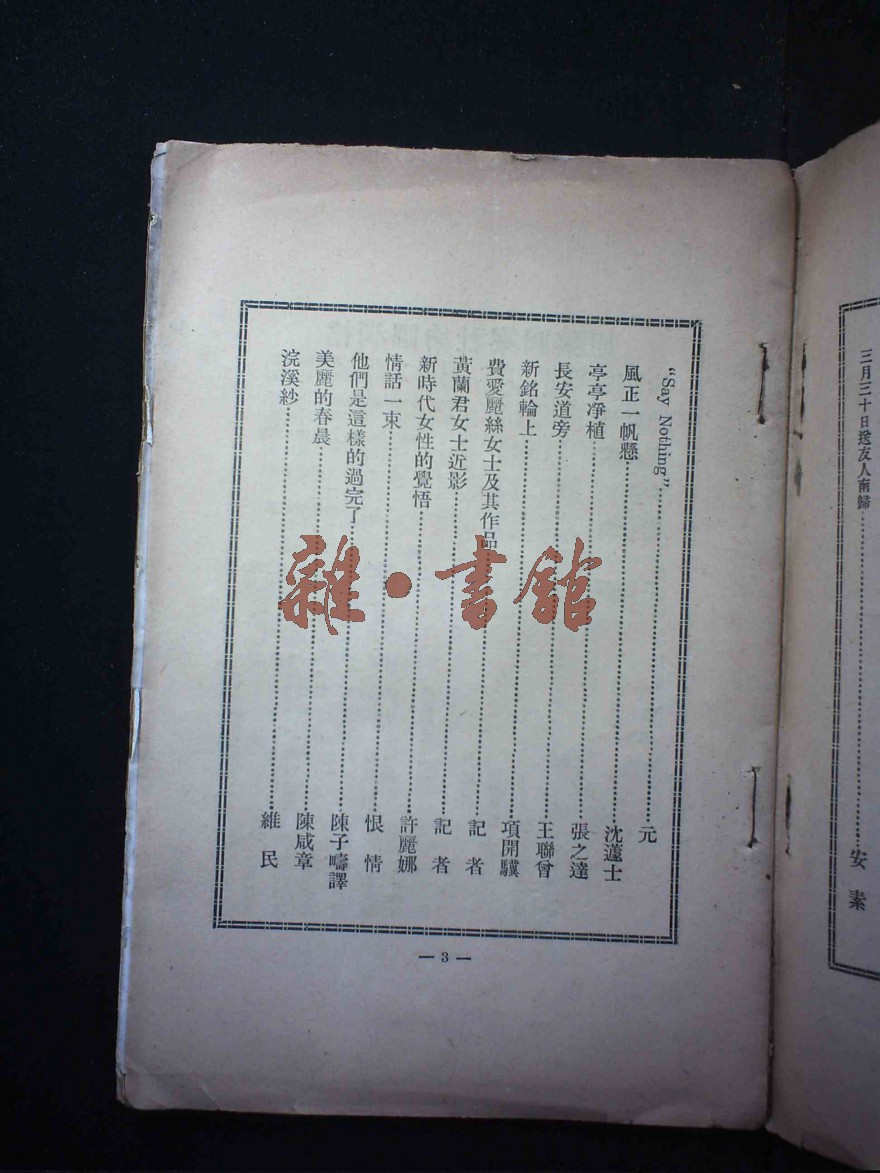 三月三十日送友人南歸……安素
"Say Nothing"……元
風正一帆懸……沈蘧士
亭亭凈植……張之達
長安道旁……王聯曾
新銘輪上……項開驥
費愛麗絲女士及其作品……記者
黃蘭君女士近影……記者
新時代女性的覺悟……許麗娜
情話一束……恨情
他們是這樣的過完了……陳子疇譯
美麗的春晨……陳咸章
浣溪紗……維民
— 3 —
雜·書館